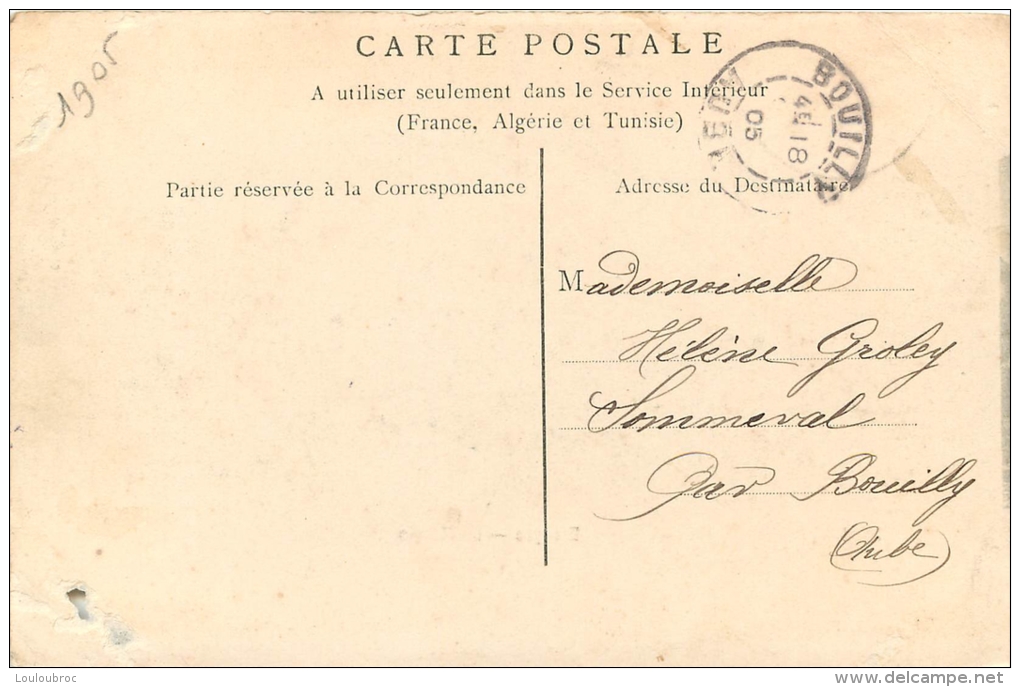 1905
CARTE POSTALE
A utiliser seulement dans le Service Intérieur
(France, Algérie et Tunisie)
BOUILLY
18
05
AUBE
Partie réservée à la Correspondance
Adresse du Destinataire
Mademoiselle
Hélène Groley
Sommeval
Par Bouilly
(Aube)
Louloubroc
www.delcampe.net